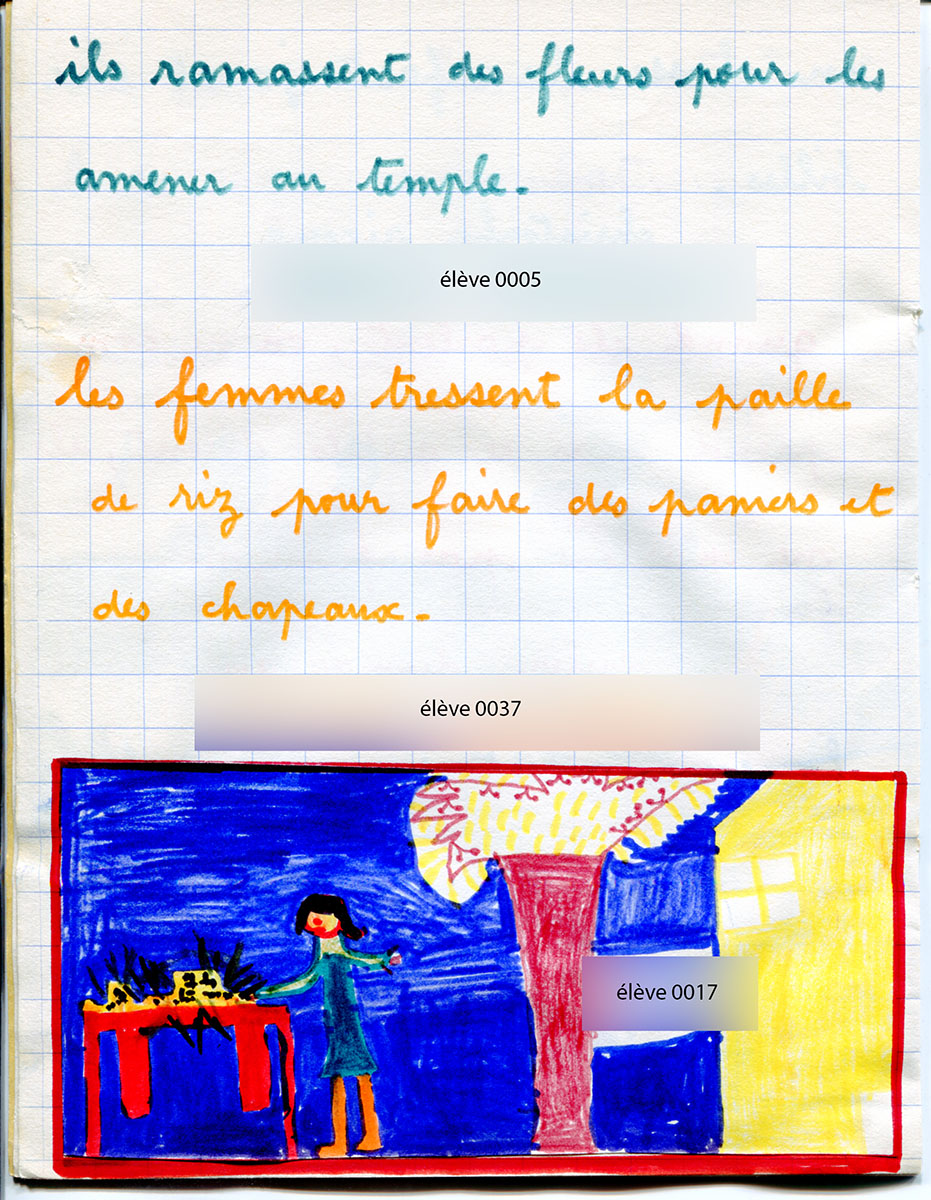 ils ramassent des fleurs pour les
amener au temple.
élève 0005
les femmes tressent la paille
de riz pour faire des paniers et
des chapeaux.
élève 0037
élève 0017